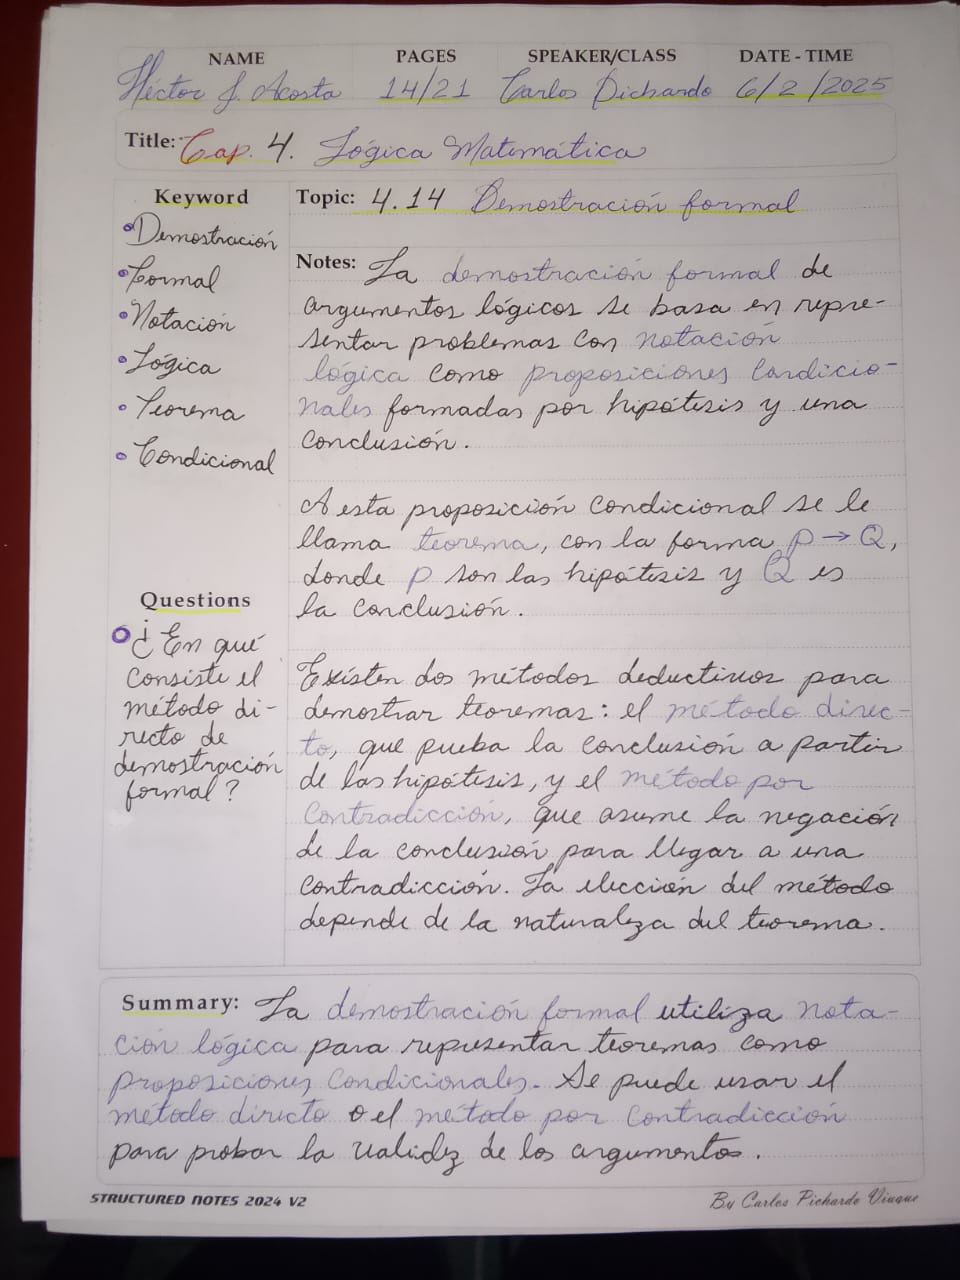 NAME PAGES SPEAKER/CLASS DATE - TIME
Héctor J. Acosta 14/21 Carlos Pichardo 6/2/2025
Title: Cap. 4. Lógica Matemática
Keyword
• Demostración
• Formal
• Notación
• Lógica
• Teorema
• Condicional
Questions
• ¿En qué
consiste el
método di-
recto de
demostración
formal?
Topic: 4.14 Demostración formal
Notes: La demostración formal de
argumentos lógicos se basa en repre-
sentar problemas con notación
lógica como proposiciones condicio-
nales formadas por hipótesis y una
conclusión.
A esta proposición condicional se le
llama teorema, con la forma p → Q,
donde p son las hipótesis y Q es
la conclusión.
Existen dos métodos deductivos para
demostrar teoremas: el método direc-
to, que prueba la conclusión a partir
de las hipótesis, y el método por
contradicción, que asume la negación
de la conclusión para llegar a una
contradicción. La elección del método
depende de la naturaleza del teorema.
Summary: La demostración formal utiliza nota-
ción lógica para representar teoremas como
proposiciones condicionales. Se puede usar el
método directo o el método por contradicción
para probar la validez de los argumentos.
STRUCTURED NOTES 2024 V2
By Carlos Pichardo Viuque